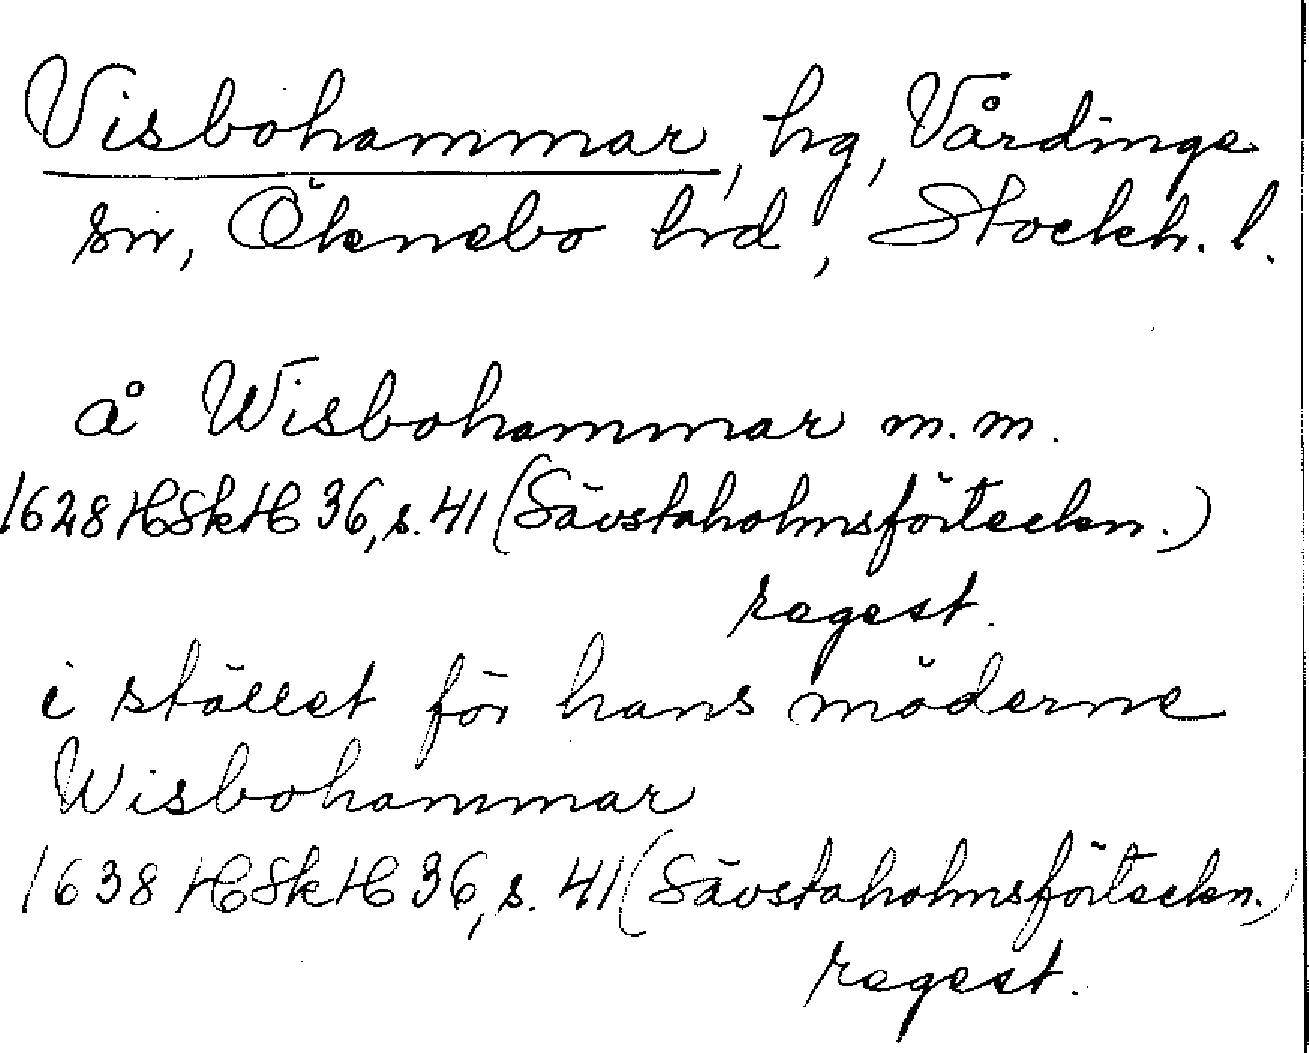 Visbohammar, hg, Vårdinge
sn, Öknebo hrd, Stockh. l.
å Wisbohammar m.m.
1628 HSkH 36, s. 41 (Sävstaholmsförteckn.)
regest.
i stället för hans möderne
Wisbohammar
1638 HSkH 36, s. 41 (Sävstaholmsförteckn.)
regest.